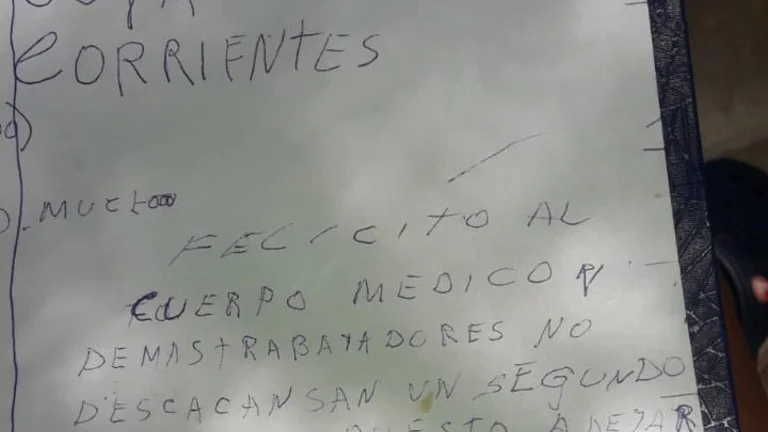 CORRIENTES
FELICITO AL
CUERPO MEDICO Y
DEMAS TRABAYADORES NO
DESCACANSAN UN SEGUNDO
A DEJAR